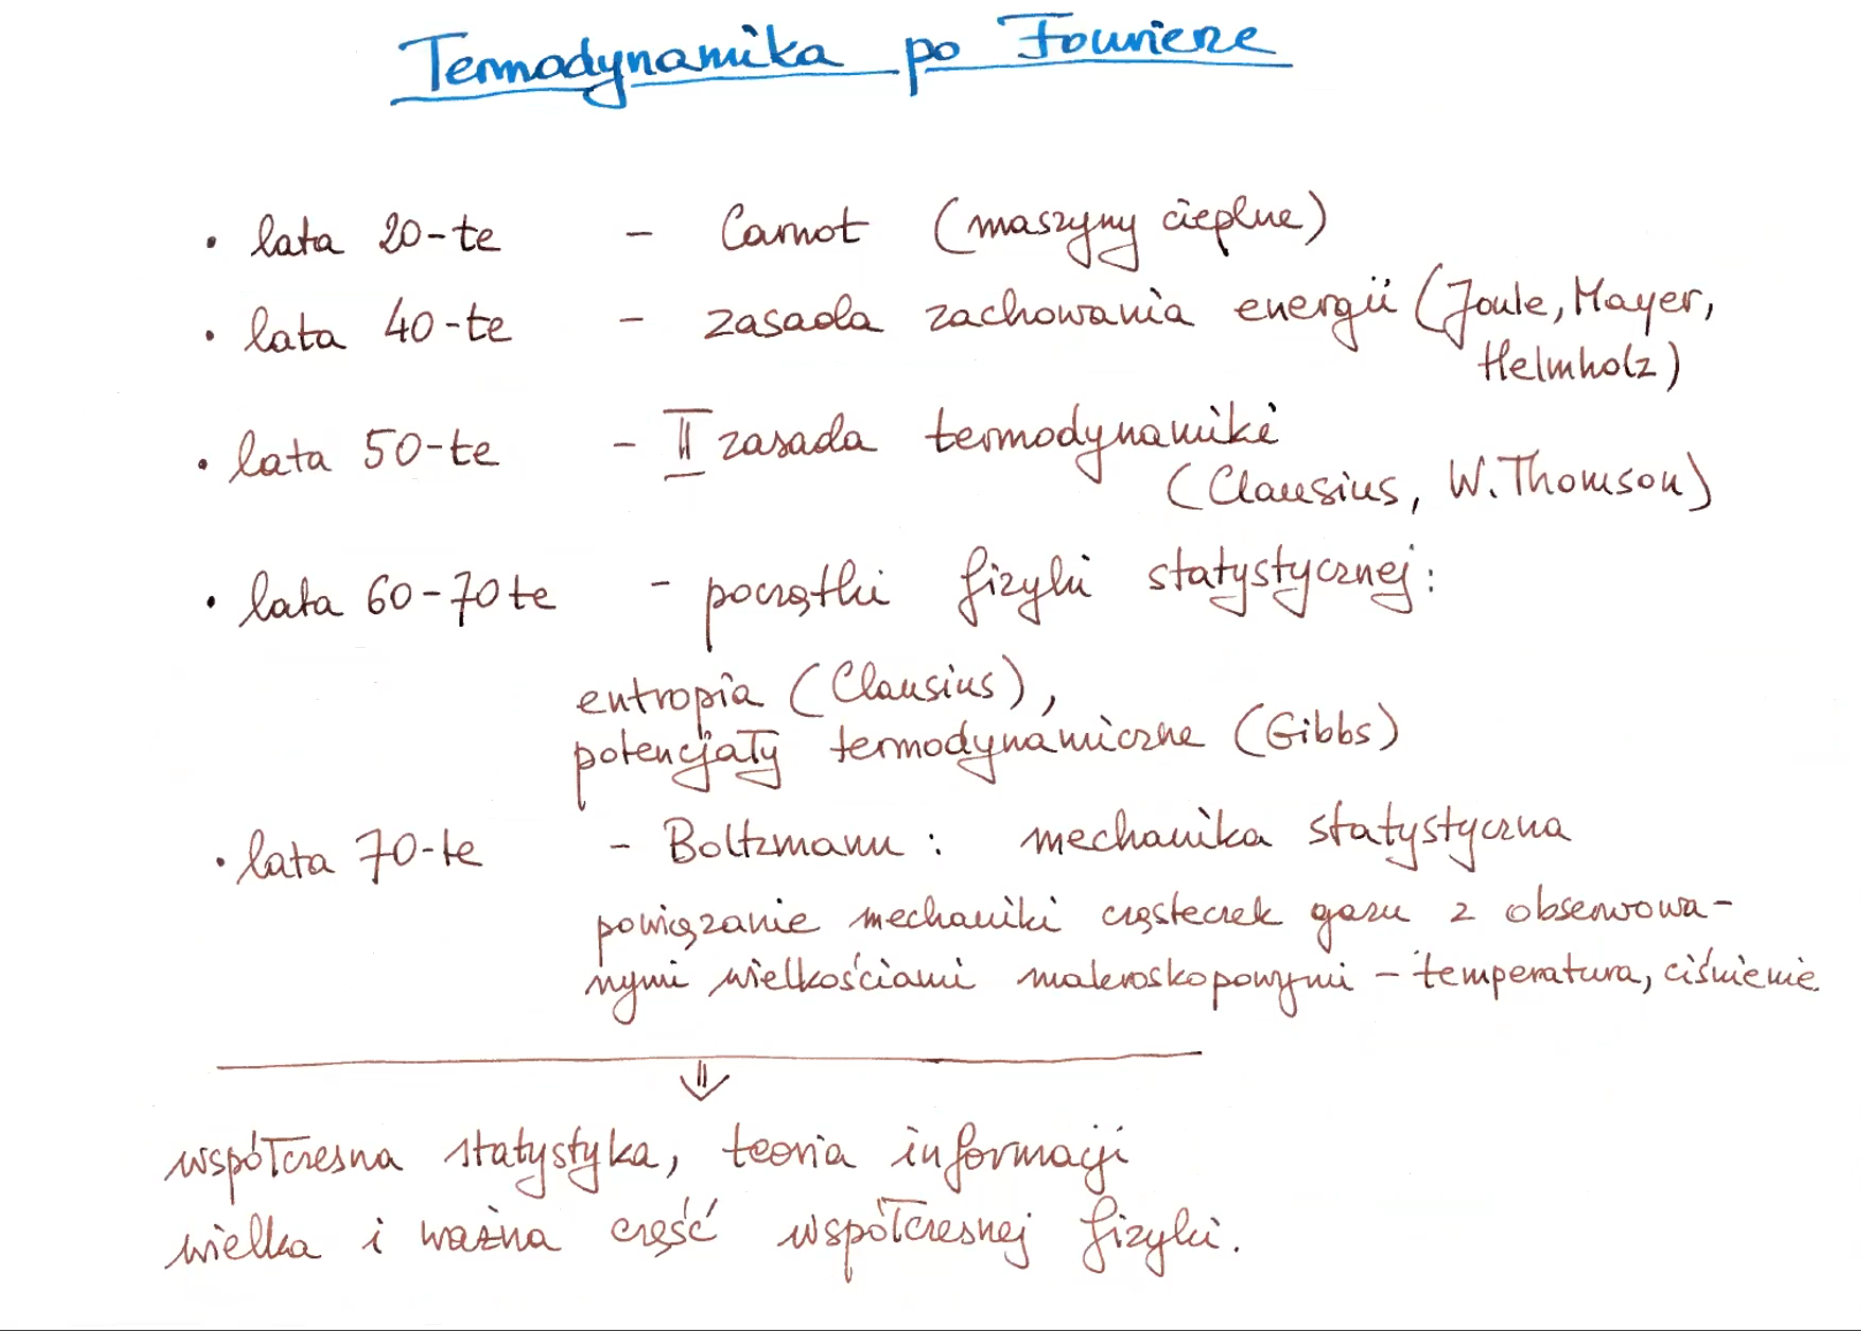 Termodynamika po Fourierze
• lata 20-te – Carnot (maszyny cieplne)
• lata 40-te – zasada zachowania energii (Joule, Mayer,
Helmholz)
• lata 50-te – II zasada termodynamiki
(Clausius, W. Thomson)
• lata 60-70te – początki fizyki statystycznej:
entropia (Clausius),
potencjały termodynamiczne (Gibbs)
• lata 70-te – Boltzmann: mechanika statystyczna
powiązanie mechaniki cząsteczek gazu z obserwowa-
nymi wielkościami makroskopowymi – temperatura, ciśnienie.
⇓
współczesna statystyka, teoria informacji
wielka i ważna część współczesnej fizyki.